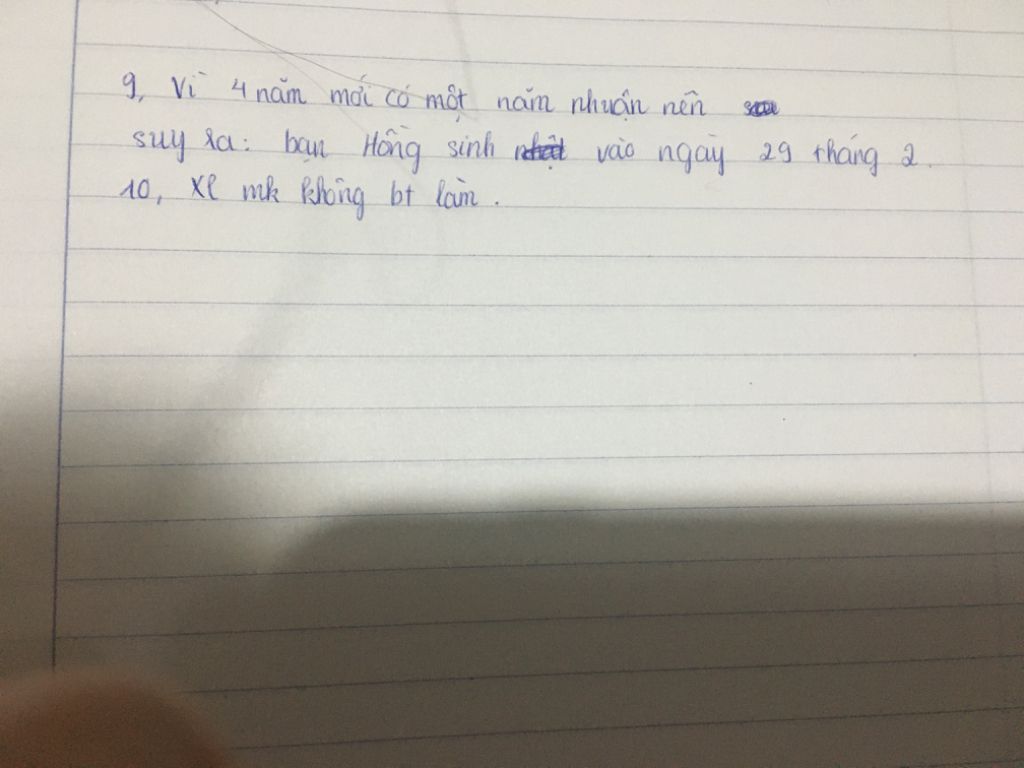 9, Vì 4 năm mới có một năm nhuận nên
suy ra: bạn Hồng sinh vào ngày 29 tháng 2.
10, Xl mk không bt làm.